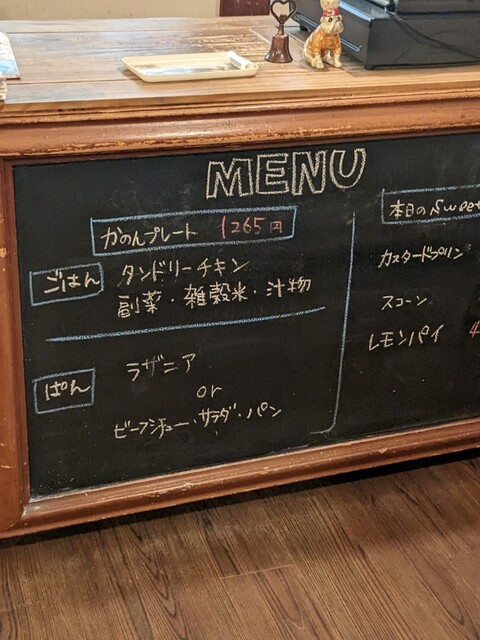 MENU
かのんプレート 1265円
ごはん
タンドリーチキン
副菜・雑穀米・汁物
ぱん
ラザニア
or
ビーフシチュー・サラダ・パン
本日のSweet
カスタードプリン
スコーン
レモンパイ 4